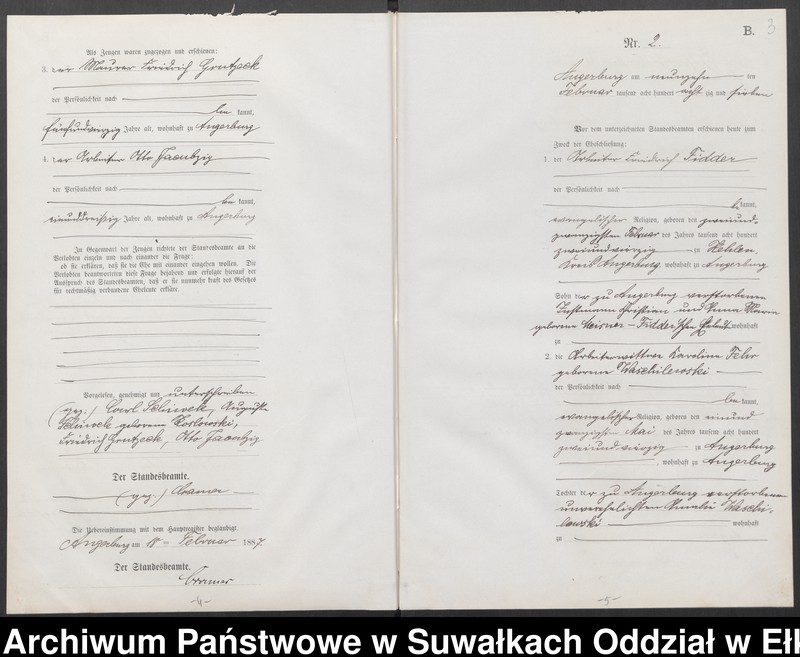 Als Zeugen waren zugezogen und erschienen:
3. der Maurer Friedrich Grutzeck
der Persönlichkeit nach
be kannt,
fünfundvierzig Jahre alt, wohnhaft zu Angerburg
4. der Arbeiter Otto
der Persönlichkeit nach
be kannt,
neununddreißig Jahre alt, wohnhaft zu Angerburg
In Gegenwart der Zeugen richtete der Standesbeamte an die
Verlobten einzeln und nach einander die Frage:
ob sie erklären, daß sie die Ehe mit einander eingehen wollen. Die
Verlobten beantworteten diese Frage bejahend und erfolgte hierauf der
Ausspruch des Standesbeamten, daß er sie nunmehr kraft des Gesetzes
für rechtmäßig verbundene Eheleute erkläre.
Vorgelesen, genehmigt und unterschrieben
(gez.) Carl Auguste
geborene Koslowski,
Friedrich Grutzeck, Otto
Der Standesbeamte.
(gez.) Cramer
Die Uebereinstimmung mit dem Hauptregister beglaubigt.
Angerburg am Februar 1887
Der Standesbeamte.
Cramer
-4-
B. 3
Nr. 2.
Angerburg am neunzehn ten
Februar tausend acht hundert acht zig und sieben
Vor dem unterzeichneten Standesbeamten erschienen heute zum
Zweck der Eheschließung:
1. der Arbeiter Friedrich Fidder
der Persönlichkeit nach
kannt,
evangelischer Religion, geboren den zweiund-
zwanzigsten Februar des Jahres tausend acht hundert
zweiundvierzig zu
Kreis Angerburg, wohnhaft zu Angerburg
Sohn der zu Angerburg verstorbenen
Instmann Christian und Anna Maria
geborene Meisner - Fidder'schen Eheleute wohnhaft
zu
2. die Arbeiterwittwe Karoline Fehr
geborene Waschilewski
der Persönlichkeit nach
be kannt,
evangelischer Religion, geboren den einund
zwanzigsten Mai des Jahres tausend acht hundert
zweiundvierzig zu Angerburg
, wohnhaft zu Angerburg
Tochter der zu Angerburg verstorbenen
unverehelichten Amalie Waschi-
lewski wohnhaft
zu
-5-
Archiwum Państwowe w Suwałkach Oddział w Ełk